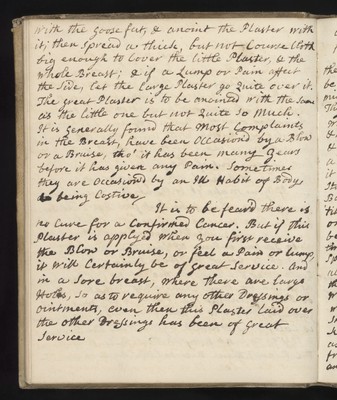 with the Goose fat, & anoint the Plaster with
it; then Spread a thick, but not Course Cloth
big enough to Cover the little Plaster, & the
whole Breast; & if a Lump or Pain affect
the Side, let the large Plaster go Quite over it.
The great Plaster is to be anointed with the Same
as the little one but not Quite So Much.
It is Generally found that Most Complaints
in the Breast, have been Occasiond by a Blow
or a Bruise, tho' it has been many Years
before it has given any Pain. Sometimes
they are Occasion'd by an Ill Habit of Body
being Costive
It is to be feard there is
no Cure for a Confirmed Cancer. But if this
Plaster is applyed when you first receive
the Blow or Bruise, or feel a Pain or Lump,
it will Certainly be of great Service. And
in a Sore breast, where there are large
Holes, So as to require any other Dressings or
ointments, even then this Plaster laid over
the other Dressings has been of Great
Service